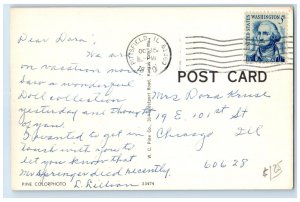 PITTSFIELD, IL
OCT
UNITED STATES
WASHINGTON 5¢
Dear Dora:
We are
on vacation now
Saw a wonderful
Doll collection
yesterday and thought
of you.
I wanted to get in
touch with you to
let you know that
Mr Springer died recently.
POST CARD
Mrs Dora Kruse
19 E. 101st St
Chicago Ill
60628
PINE COLORPHOTO 33474
$1.25